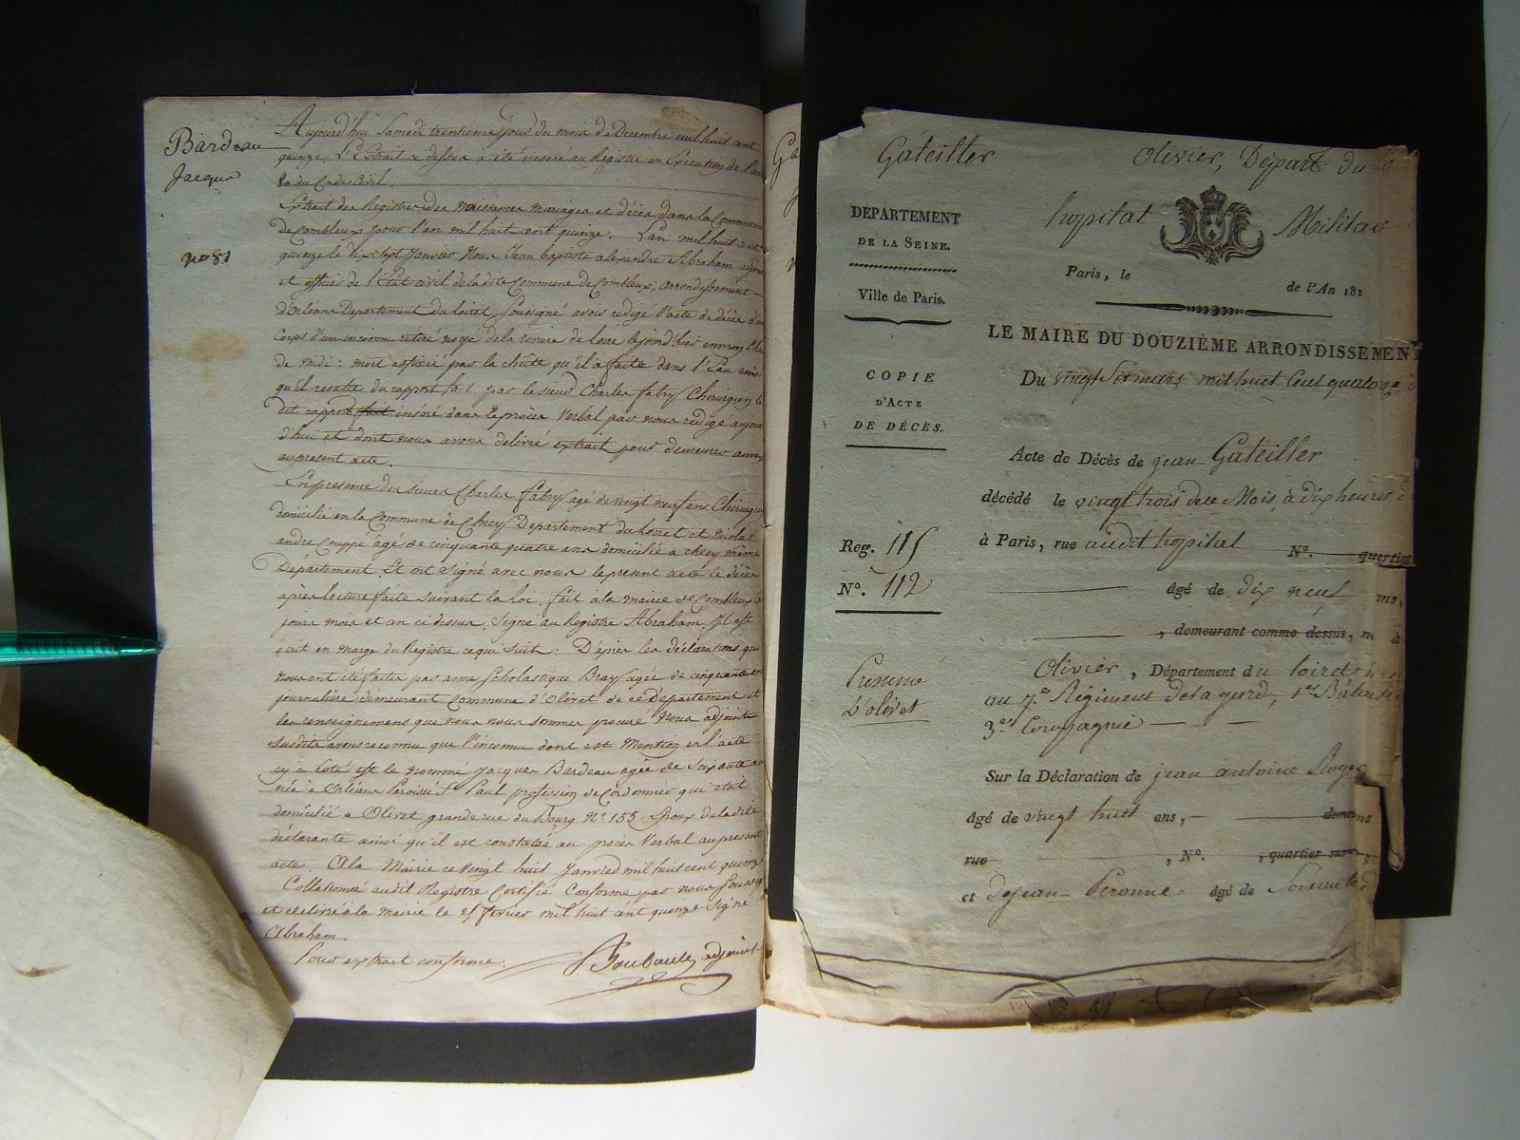 Bardeau
Jacques
n° 81
Aujourd'hui Samedi trentieme jour du mois de Decembre mil huit cent
quinze, L'Extrait ci dessus a été inseré au Registre en Execution de
du Code Civil.
Extrait des Registres des naissances mariages et décès dans la Commune
de Combleux pour l'an mil huit cent quinze. L'an mil huit cent
quinze le vingt sept Janvier Nous Jean baptiste alexandre Abraham
et officier de l'Etat civil de la dite Commune de Combleux, arrondissement
d'Orléans Departement du loiret, Soussigné avons redigé l'acte de décès d'un
Corps d'un inconnu retiré noyé de la riviere de loire
de midi : mort asfixié par la chûte qu'il a faite dans l'Eau
qu'il resulte du rapport fait par le sieur Charles fabry Chirurgien le
dit rapport fait inséré dans le procès Verbal par nous redigé
d'hui et dont nous avons delivré extrait pour demeurer annexé
au present acte.
En presence des sieurs Charles fabry agé de vingt neuf ans Chirurgien
domicilié en la Commune de Checy Departement du loiret et
andre Couppé âgé de cinquante quatre ans domicilié a checy même
Departement. Et ont signé avec nous le present acte de décès
après lecture faite suivant la loi. fait à la mairie de Combleux
jours mois et an ci dessus. Signé au Registre Abraham. Il est
écrit en marge du Registre ce qui suit : D'après les déclarations qui
nous ont été faites par anne Scholastique Bray agée de cinquante
journaliere demeurant Commune d'Olivet de ce Departement et
les renseignemens que nous nous sommes procuré Nous adjoint
susdits avons reconnu que l'inconnu dont est Mention en l'acte
ci à coté est le nommé Jacques Bardeau agée de Soixante
née a Orléans Paroisse St Paul profession de Cordonnier qui était
domicilié a Olivet grande rue du Bourg N° 155 Epoux de la dite
déclarante ainsi qu'il est constaté au procès Verbal au present
acte. A la Mairie ce Vingt huit Janvier mil huit cent quinze
Collationné au dit Registre Certifié Conforme par nous Soussigné
et delivré à la mairie le 25 fevrier mil huit cent quinze Signé
Abraham.
Pour extrait conforme.
Foubault, adjoint
Gateiller Olivier, Départ. du
hopital Militair
DEPARTEMENT
DE LA SEINE.
Ville de Paris.
Paris, le
de l'An 181
LE MAIRE DU DOUZIÈME ARRONDISSEMENT
Du vingt Six mars mil huit Cent quatorze
COPIE
D'ACTE
DE DÉCÈS.
Acte de Décès de jean Gateiller
décédé le vingt trois de ce Mois, à dix heures d
à Paris, rue audit hopital N°. quartier
Reg. 115
N°. 112
âgé de dix neuf ans,
, demeurant comme dessus, né à
Olivier, Département du loiret
au 7.e Régiment de la garde, 1.er Bataillon
3.e Compagnie
Presumé
D'olivet
Sur la Déclaration de jean antoine Roger
âgé de vingt huit ans, demeurant
rue , N°. , quartier
et de jean Peronne âgé de